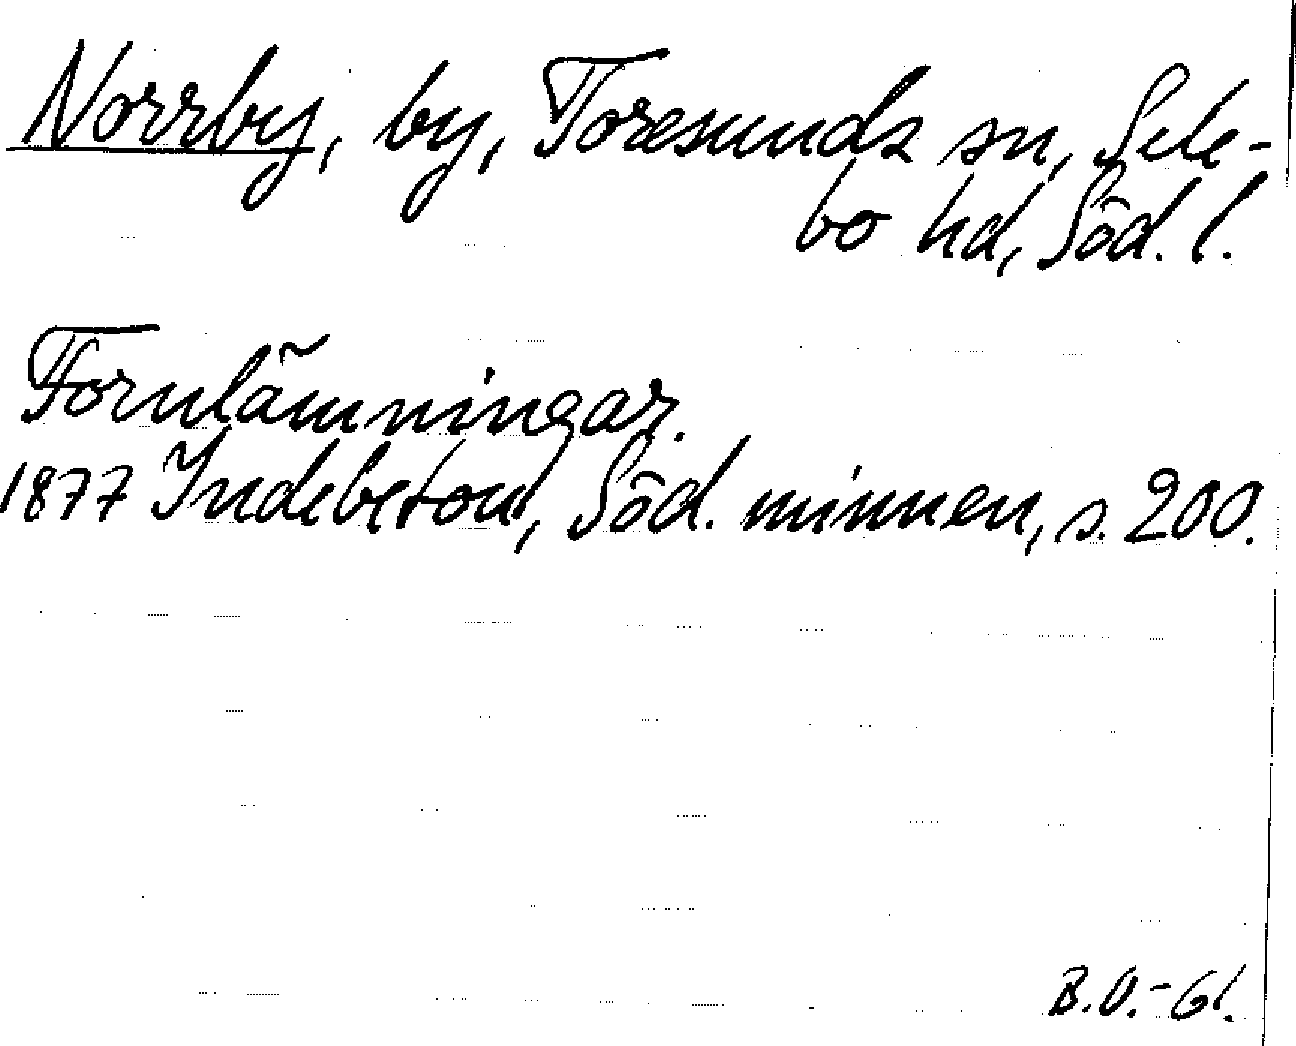 Norrby, by, Toresunds sn, Sele-
bo hd, Söd. l.
Fornlämningar.
1877 Indebetou, Söd. minnen, s. 200.
B.O.-61.